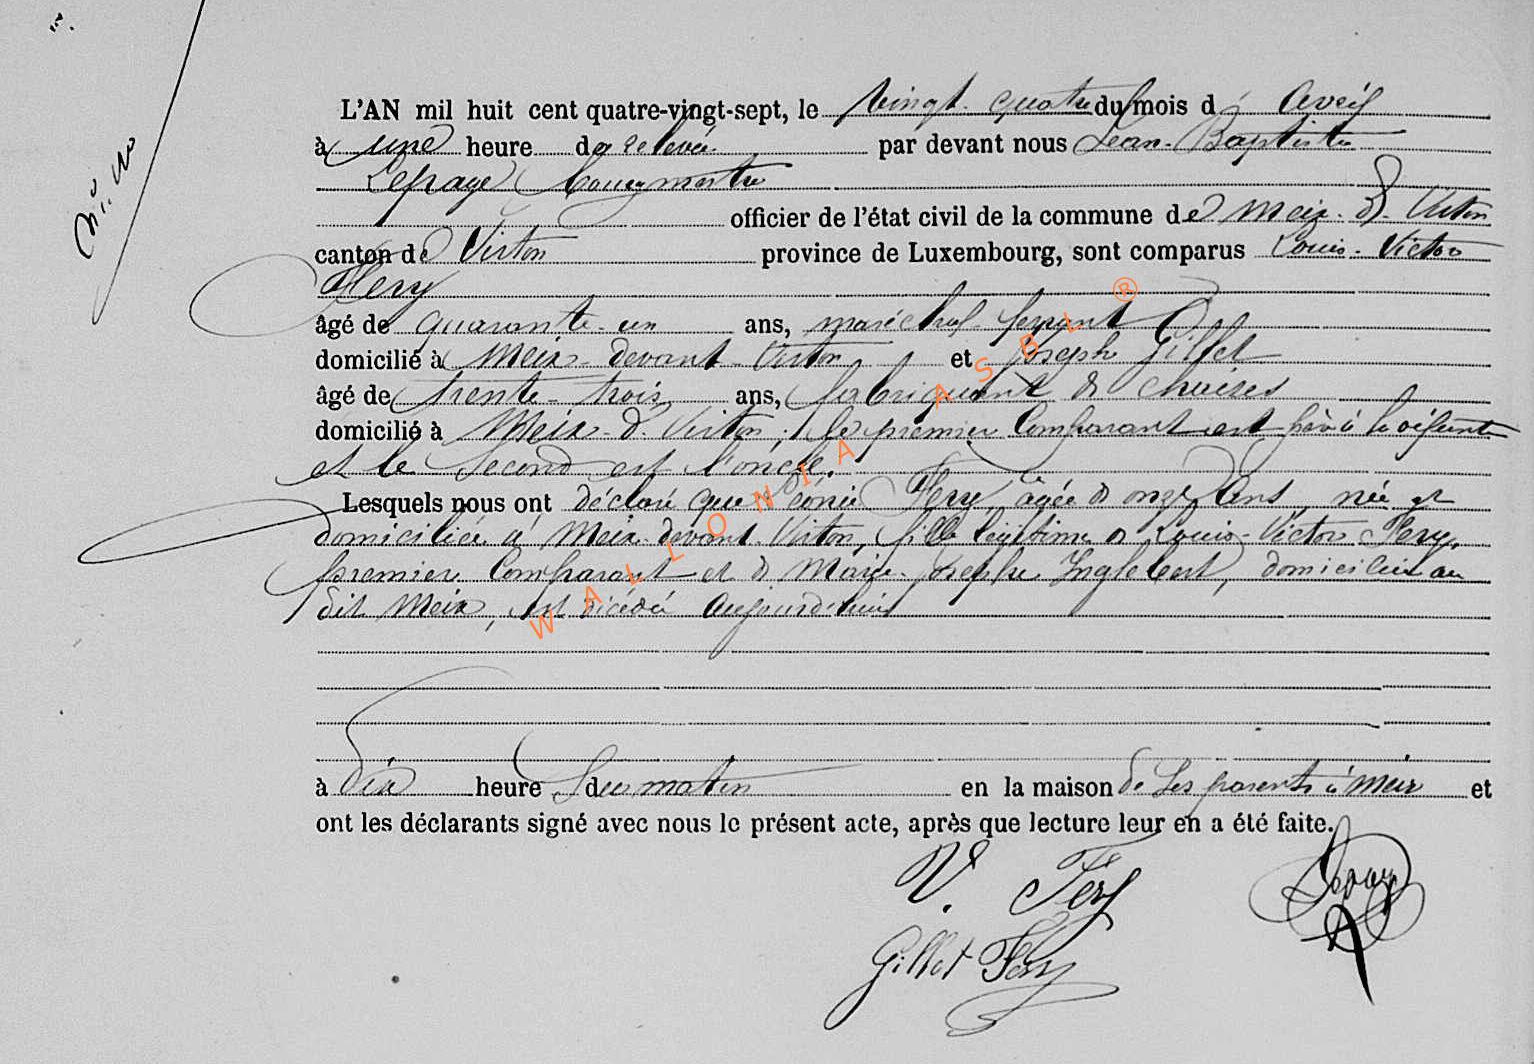 L'AN mil huit cent quatre-vingt-sept, le vingt-quatre du mois d'Avril
à une heure de relevée par devant nous Jean-Baptiste
Lepage, bourgmestre
officier de l'état civil de la commune de Meix-dt-Virton
canton de Virton province de Luxembourg, sont comparus Louis-Victor
Fery
âgé de quarante-un ans, maréchal-ferrant
domicilié à Meix-devant-Virton et Joseph Gillet
âgé de trente-trois ans, fabriquant de chaises
domicilié à Meix-d-Virton; le premier comparant est père à la défunte
et le second est l'oncle.
Lesquels nous ont déclaré que Léonie Fery, agée de onze ans, née et
domiciliée à Meix-devant-Virton, fille légitime de Louis-Victor Fery,
premier comparant et de Marie-Josephe Inglebert, domiciliés au
dit Meix, est décédée aujourd'hui
à dix heures du matin en la maison de ses parents à Meix et
ont les déclarants signé avec nous le présent acte, après que lecture leur en a été faite.
V. Fery
Gillet Fery
WALLONIA ASBL ®